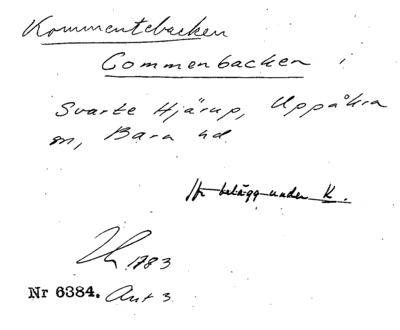 Kommentebacken
Commenbacken i
Svarte Hjärup, Uppåkra
sn, Bara hd.
belägg under K.
1783
Nr 6384. Ant 3